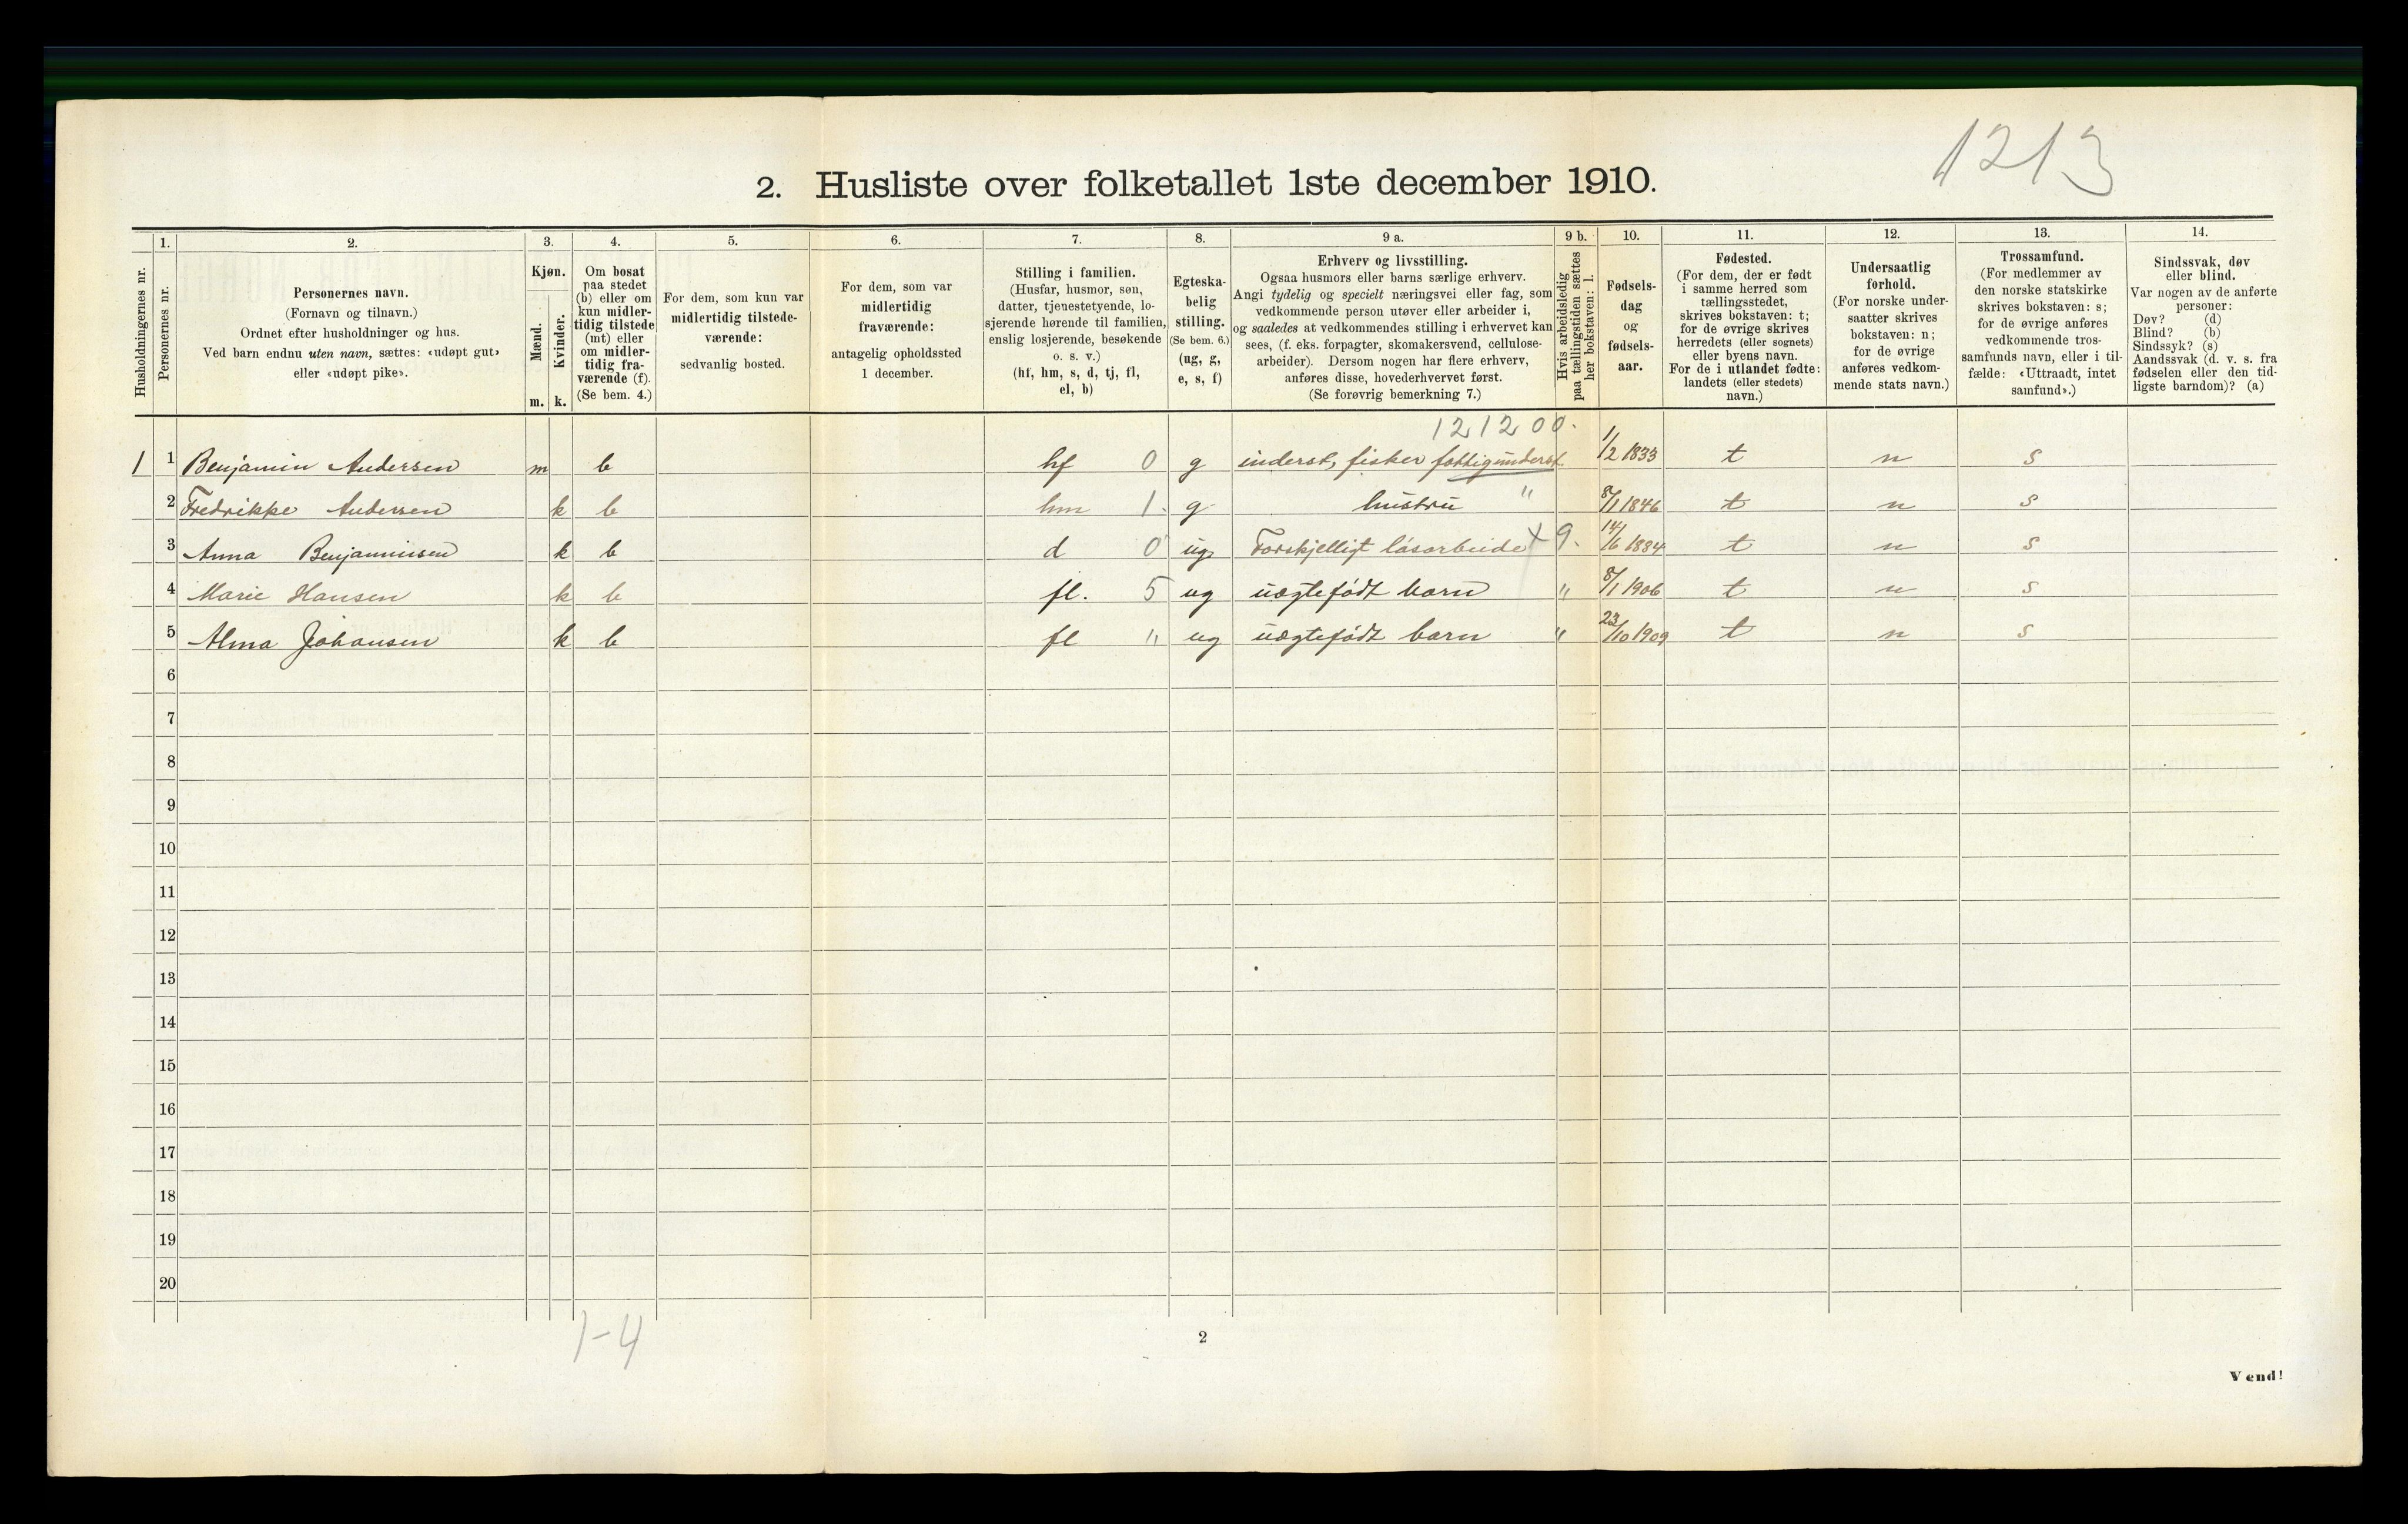 1213
2. Husliste over folketallet 1ste december 1910.
1. 2. 3. 4. 5. 6. 7. 8. 9 a. 9 b. 10. 11. 12. 13. 14.
Husholdningernes nr.
Personernes nr.
Personernes navn.
(Fornavn og tilnavn.)
Ordnet efter husholdninger og hus.
Ved barn endnu uten navn, sættes: «udøpt gut»
eller «udøpt pike».
Kjøn.
Mænd.
Kvinder.
m. k.
Om bosat
paa stedet
(b) eller om
kun midler-
tidig tilstede
(mt) eller
om midler-
tidig fra-
værende (f).
(Se bem. 4.)
For dem, som kun var
midlertidig tilstede-
værende:
sedvanlig bosted.
For dem, som var
midlertidig
fraværende:
antagelig opholdssted
1 december.
Stilling i familien.
(Husfar, husmor, søn,
datter, tjenestetyende, lo-
sjerende hørende til familien,
enslig losjerende, besøkende
o. s. v.)
(hf, hm, s, d, tj, fl,
el, b)
Egteska-
belig
stilling.
(Se bem. 6.)
(ug, g,
e, s, f)
Erhverv og livsstilling.
Ogsaa husmors eller barns særlige erhverv.
Angi tydelig og specielt næringsvei eller fag, som
vedkommende person utøver eller arbeider i,
og saaledes at vedkommendes stilling i erhvervet kan
sees, (f. eks. forpagter, skomakersvend, cellulose-
arbeider). Dersom nogen har flere erhverv,
anføres disse, hovederhvervet først.
(Se forøvrig bemerkning 7.)
Hvis arbeidsledig
paa tællingstiden sættes
her bokstaven: l.
Fødsels-
dag
og
fødsels-
aar.
Fødested.
(For dem, der er født
i samme herred som
tællingsstedet,
skrives bokstaven: t;
for de øvrige skrives
herredets (eller sognets)
eller byens navn.
For de i utlandet fødte:
landets (eller stedets)
navn.)
Undersaatlig
forhold.
(For norske under-
saatter skrives
bokstaven: n;
for de øvrige
anføres vedkom-
mende stats navn.)
Trossamfund.
(For medlemmer av
den norske statskirke
skrives bokstaven: s;
for de øvrige anføres
vedkommende tros-
samfunds navn, eller i til-
fælde: «Uttraadt, intet
samfund».)
Sindssvak, døv
eller blind.
Var nogen av de anførte
personer:
Døv? (d)
Blind? (b)
Sindssyk? (s)
Aandssvak (d. v. s. fra
fødselen eller den tid-
ligste barndom)? (a)
121200.
1 1 Benjamin Andersen m b hf 0 g inderst, fisker fattigunderst. 1/2 1833 t n s
2 Fredrikke Andersen k b hm 1. g hustru " 8/1 1846 t n s
3 Anna Benjaminsen k b d 0 ug Forskjelligt løsarbeide 9. 14/6 1884 t n s
4 Marie Hansen k b fl. 5 ug uægtefødt barn " 8/1 1906 t n s
5 Alma Johansen k b fl " ug uægtefødt barn " 23/10 1909 t n s
6
7
8
9
10
11
12
13
14
15
16
17
18
19
20
1-4
2
Vend!